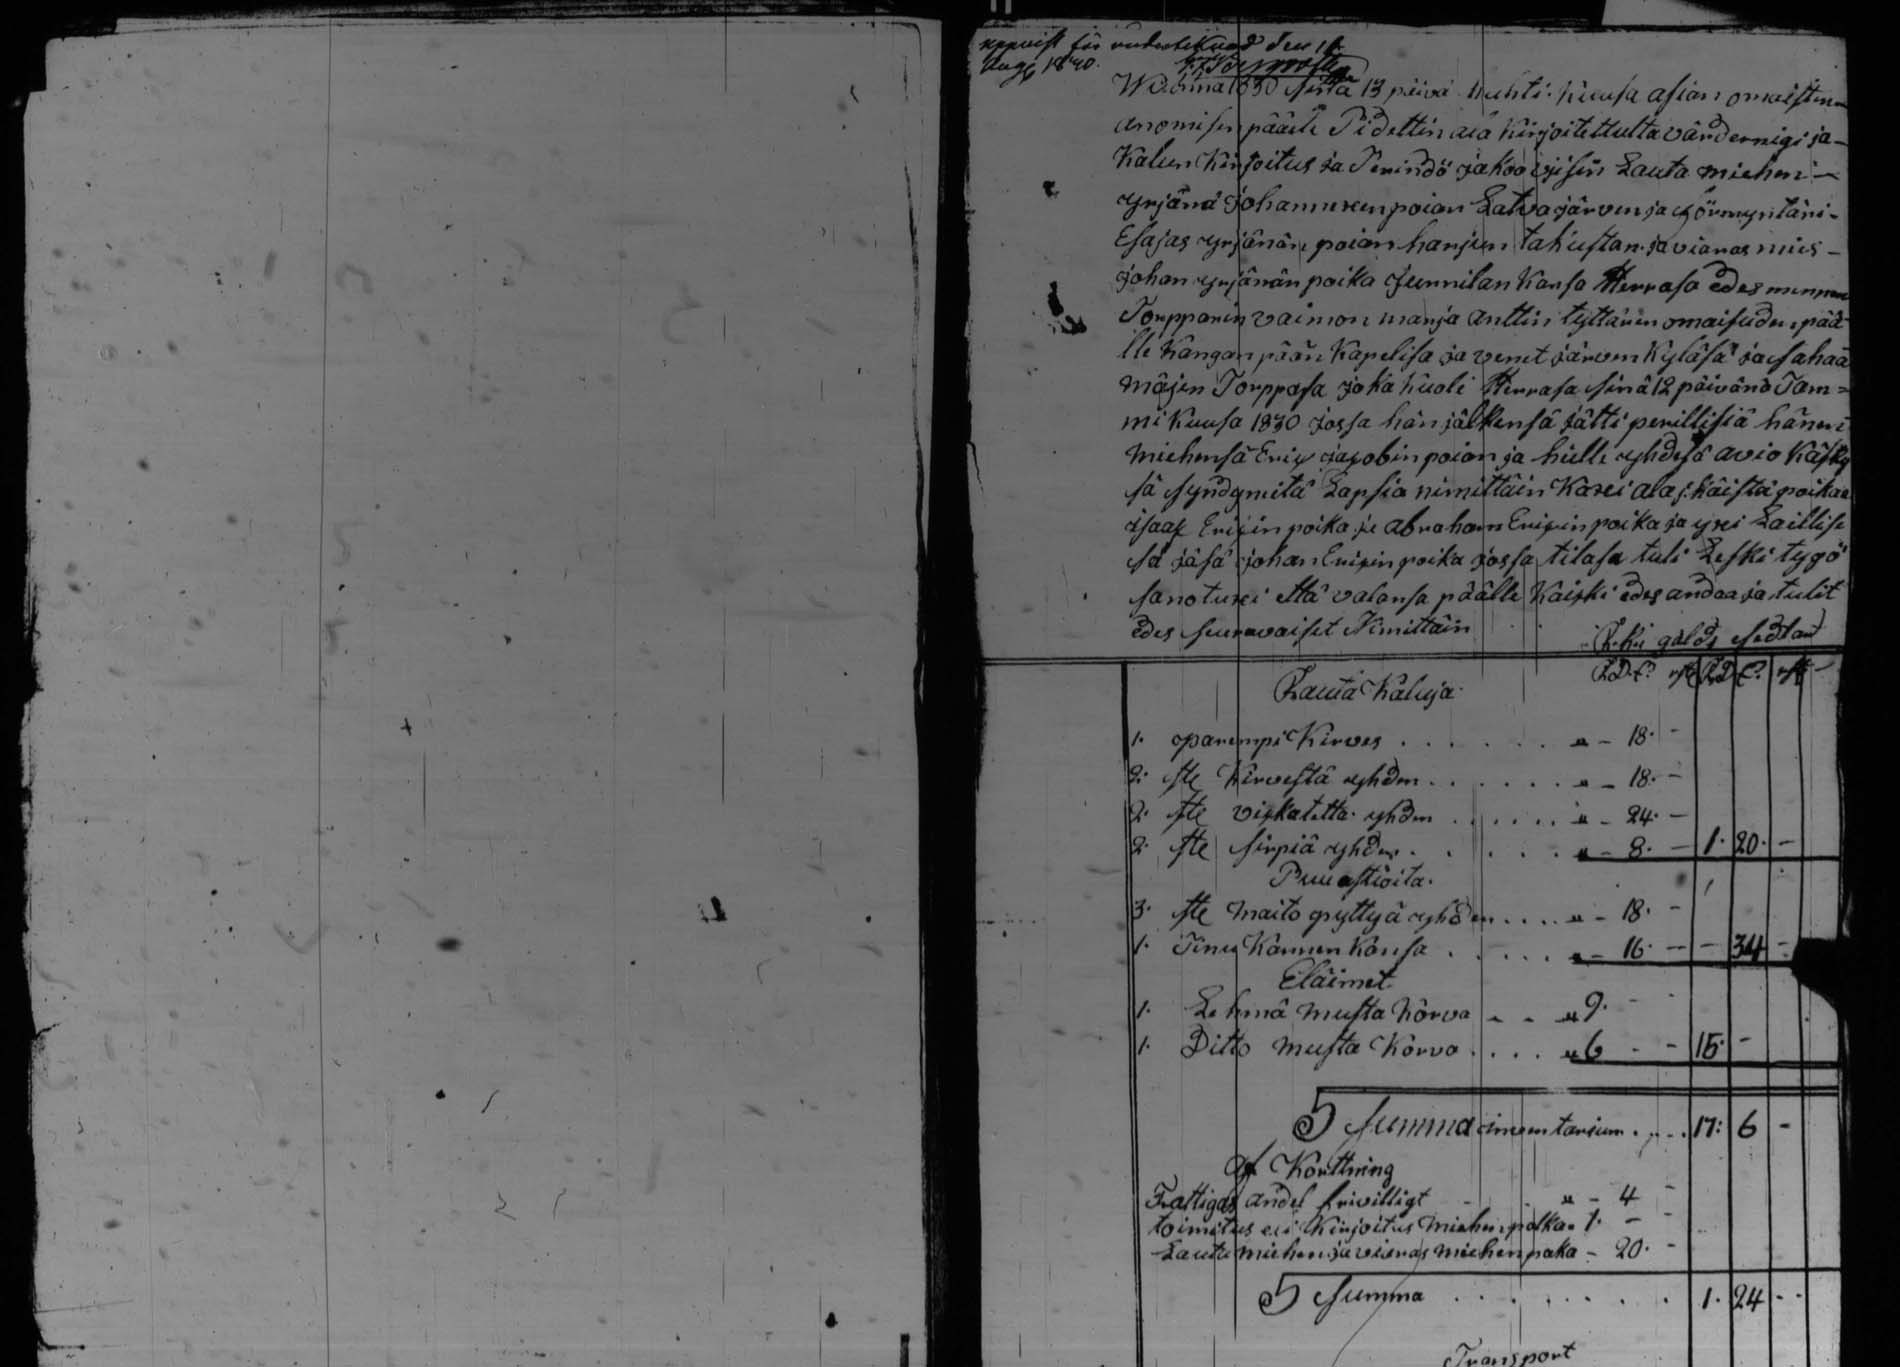 uppvist för undertecknad den 16
Aug 1830.
Wuonna 1830 sinä 13 päivä Huhti-kuusa asian omaisten
anomisen päälle Pidettin ala kirjoitettulta värderingi ja
Kalun kirjoitus ja Perindö jakoo ysisin Lauta miehen
yrjänä Johannexen poian Latvajärven ja
Esajas yrjänän poian harjun tahustan ja vieras mies
Johan yrjänän poika Junnilan Kansa Herrasa edes mennen
Torpparin vaimon marja Anttin tyttären omaisuden pää
lle Kangan pään Kapelisa ja venet järven Kyläsä ja sahaa
mäjen Torppasa joka kuoli Herrasa sinä 12 päivänä Tam=
mi kuusa 1830 jossa hän jälkensä jätti perillisiä hänen
miehensä Erix Jacobin poian ja hielle yhdesä avio Käsky
sä syndymitä Lapsia nimittäin Kaxi ala j: käistä poikaa
isaac Erixin poika ja abraham Erixin poika ja yxi Laillise
sä jäsä johan Erixin poika jossa tilasa tuli Leski tygö
sanotuxi että valansa päälle Kaikki edes andaa ja tulit
edes seuravaiset Nimittäin
R:ki gälds sedlar
Rauta Kaluja R.D. s. rst R.D. s. rst
1. parempi Kirves . . . . . . " - 18. -
2. ste Kirvestä yhden . . . . . . " - 18. -
2. ste vikatetta yhden . . . . . . " - 24. -
2. ste sirpiä yhden . . . . . . " - 8. - 1. 20. -
Puu astioita.
3. ste maito pyttyä yhden . . . . " - 18. -
1. Tinu Kannen Kansa . . . . . " - 16. - - 34 -
Eläimet
1. Lehmä musta Korva - - " 9. -
1. Ditto musta Korva . . . . " 6 - - 15. -
Summa inventarium . . . . 17: 6 -
Af Korttning
Fattigas andel frivilligt - " - 4 -
toimitus eli Kirjoitus miehen palka. 1. - -
Lauta miehen ja vieras miehen paka - 20. -
Summa . . . . . . . . 1. 24 - -
Transport